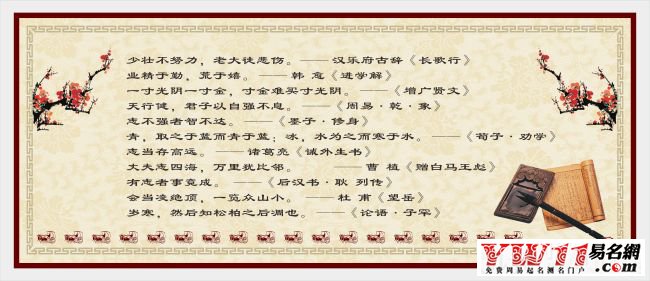 少壮不努力，老大徒悲伤。——汉乐府古辞《长歌行》
业精于勤，荒于嬉。——韩 愈《进学解》
一寸光阴一寸金，寸金难买寸光阴。——《增广贤文》
天行健，君子以自强不息。——《周易·乾·象》
志不强者智不达。——《墨子·修身》
青，取之于蓝而青于蓝；冰，水为之而寒于水。——《荀子·劝学》
志当存高远。——诸葛亮《诫外生书》
丈夫志四海，万里犹比邻。——曹 植《赠白马王彪》
有志者事竟成。——《后汉书·耿 列传》
会当凌绝顶，一览众山小。——杜 甫《望岳》
岁寒，然后知松柏之后凋也。——《论语·子罕》
YW11 易名網
.com
免费周易起名测名门户